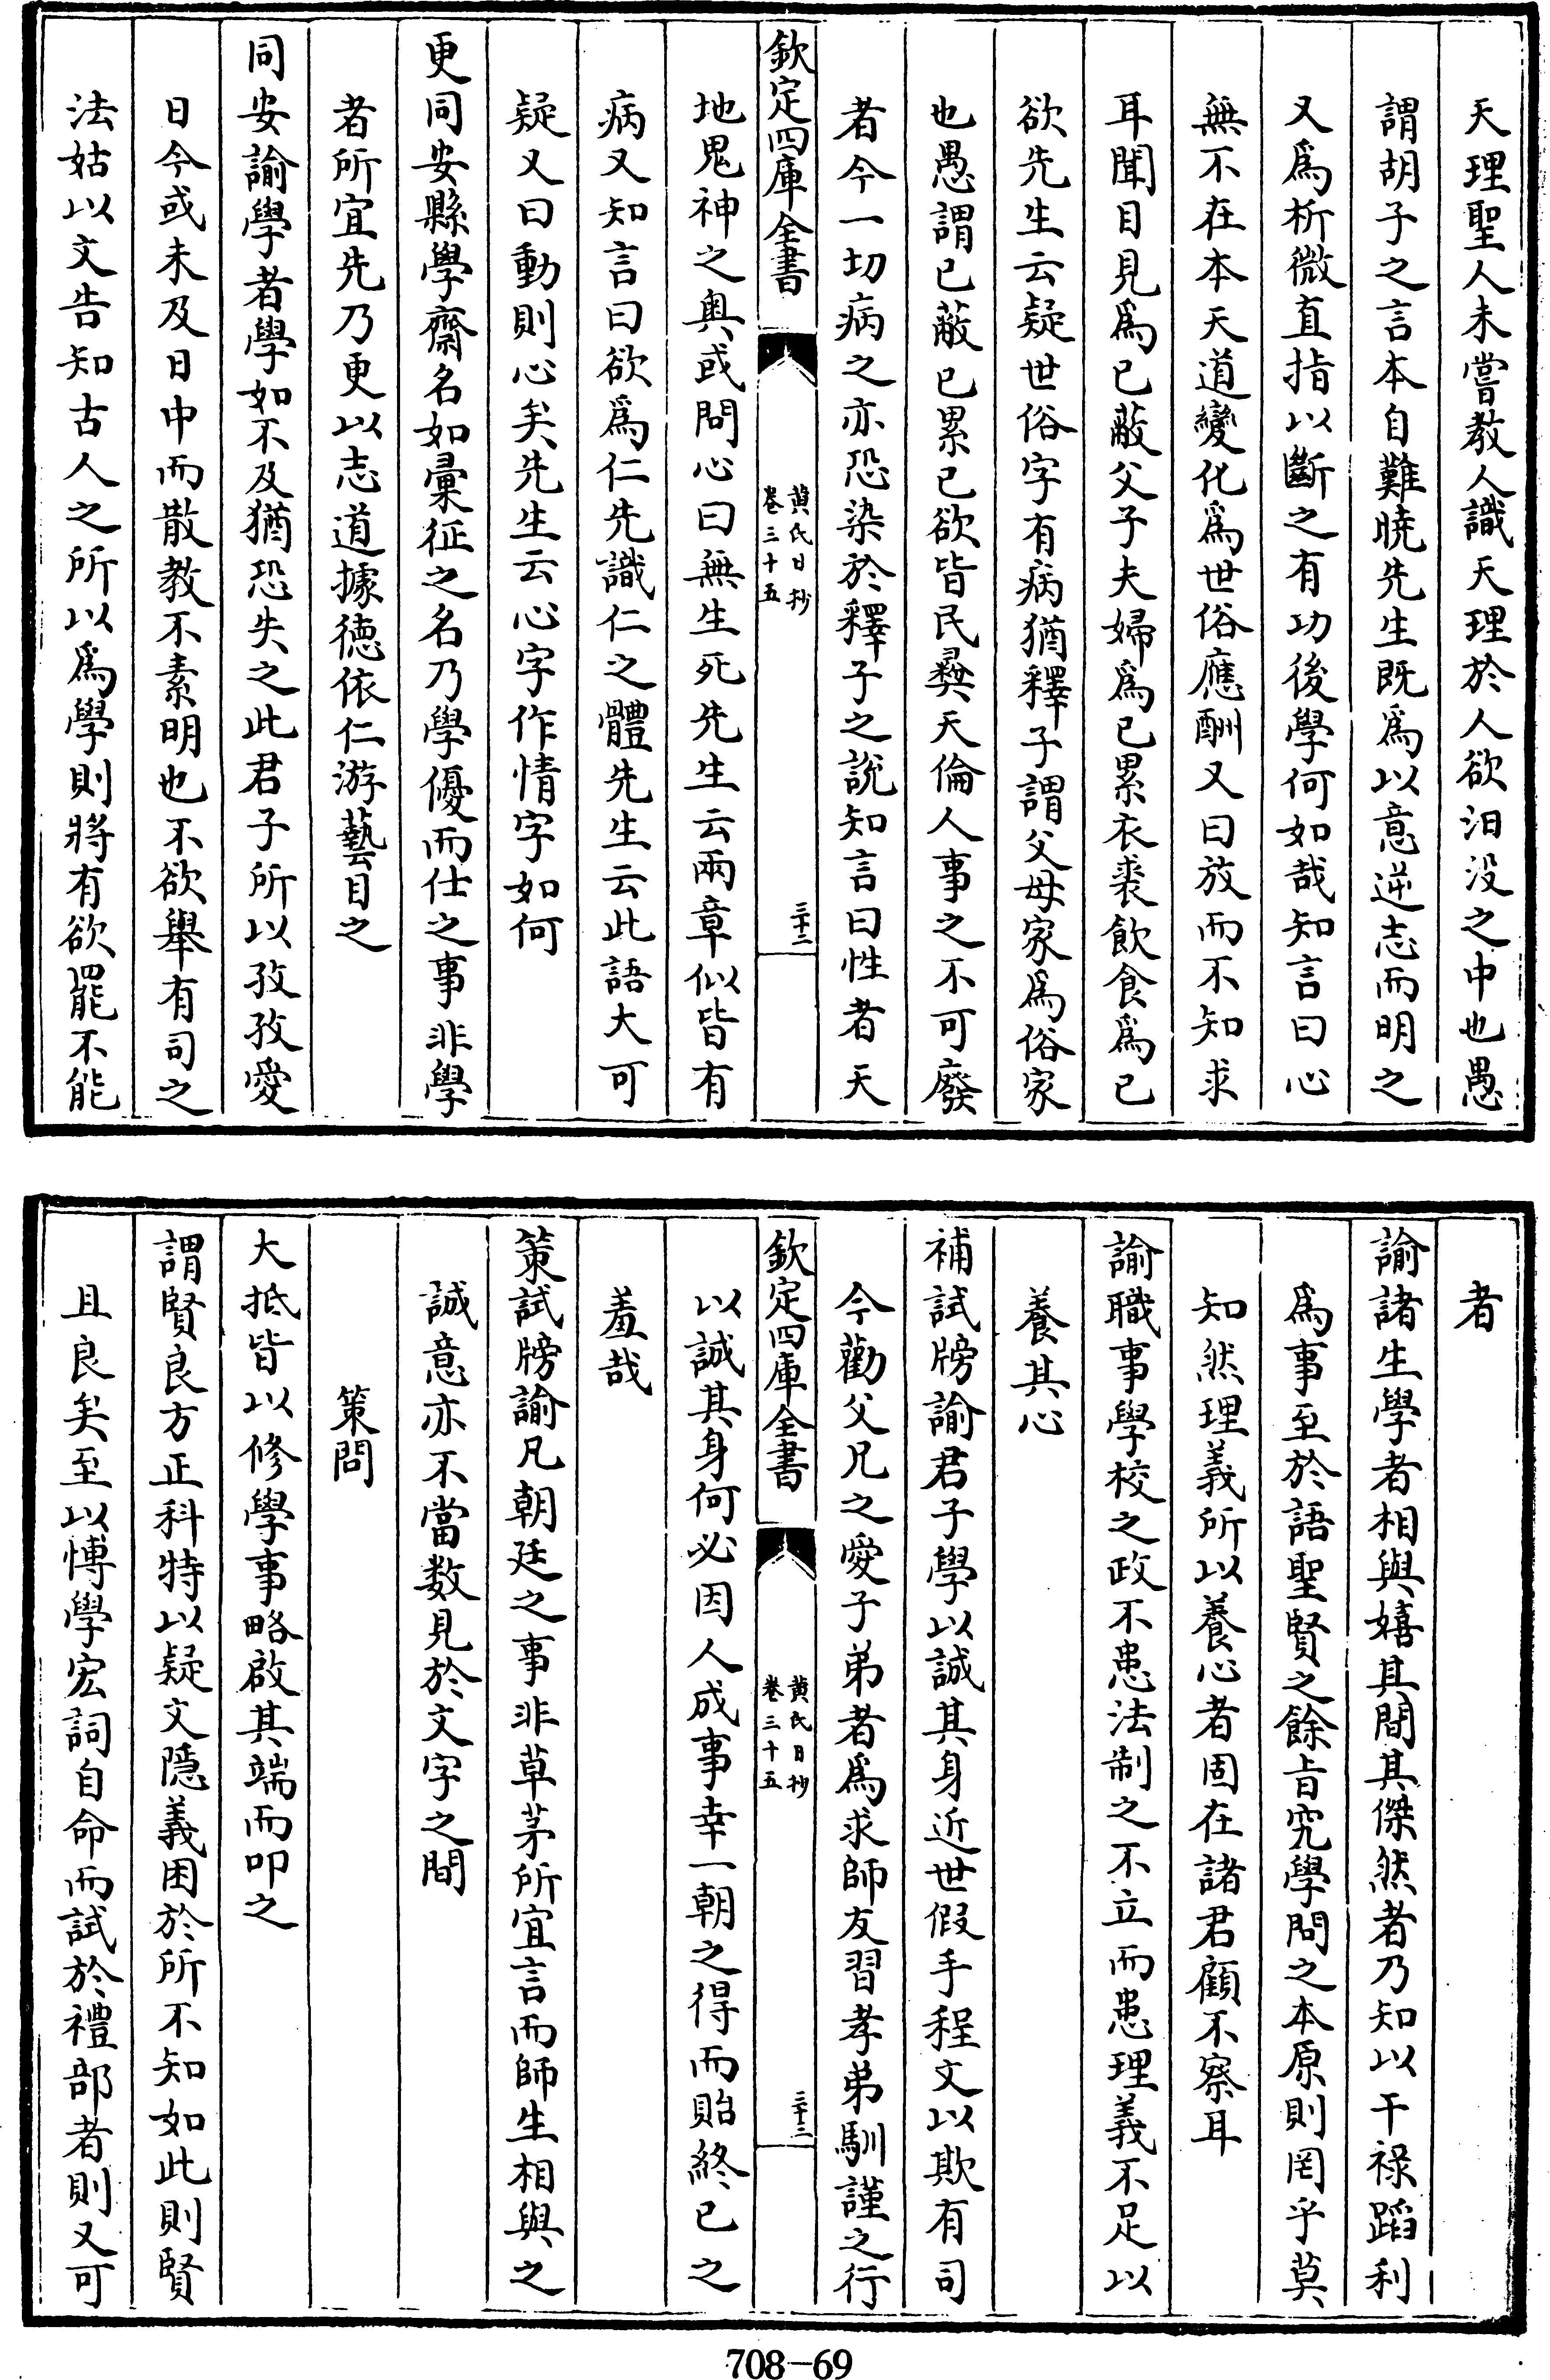 天理聖人未嘗教人識天理於人欲汨没之中也愚
謂胡子之言本自難曉先生既爲以意逆志而明之
又爲析微直指以斷之有功後學何如哉知言曰心
無不在本天道變化爲世俗應酬又曰放而不知求
耳聞目見爲已蔽父子夫婦爲已累衣裘飲食爲已
欲先生云疑世俗字有病猶釋子謂父母家爲俗家
也愚謂已蔽已累已欲皆民彜天倫人事之不可廢
者今一切病之亦恐染於釋子之說知言曰性者天
欽定四庫全書
黄氏日抄
卷三十五
三十二
地鬼神之奥或問心曰無生死先生云兩章似皆有
病又知言曰欲爲仁先識仁之體先生云此語大可
疑又曰動則心矣先生云心字作情字如何
更同安縣學齋名如彚征之名乃學優而仕之事非學
者所宜先乃更以志道據德依仁游藝目之
同安諭學者學如不及猶恐失之此君子所以孜孜愛
日今或未及日中而散教不素明也不欲舉有司之
法姑以文告知古人之所以爲學則將有欲罷不能
者
諭諸生學者相與嬉其間其傑然者乃知以干祿蹈利
爲事至於語聖賢之餘旨究學問之本原則罔乎莫
知然理義所以養心者固在諸君顧不察耳
諭職事學校之政不患法制之不立而患理義不足以
養其心
補試牓諭君子學以誠其身近世假手程文以欺有司
今勸父兄之愛子弟者爲求師友習孝弟馴謹之行
欽定四庫全書
黄氏日抄
卷三十五
三十三
以誠其身何必因人成事幸一朝之得而貽終已之
羞哉
策試牓諭凡朝廷之事非草茅所宜言而師生相與之
誠意亦不當数見於文字之間
策問
大抵皆以修學事略啟其端而叩之
謂賢良方正科特以疑文隱義困於所不知如此則賢
且良矣至以愽學宏詞自命而試於禮部者則又可
708-69